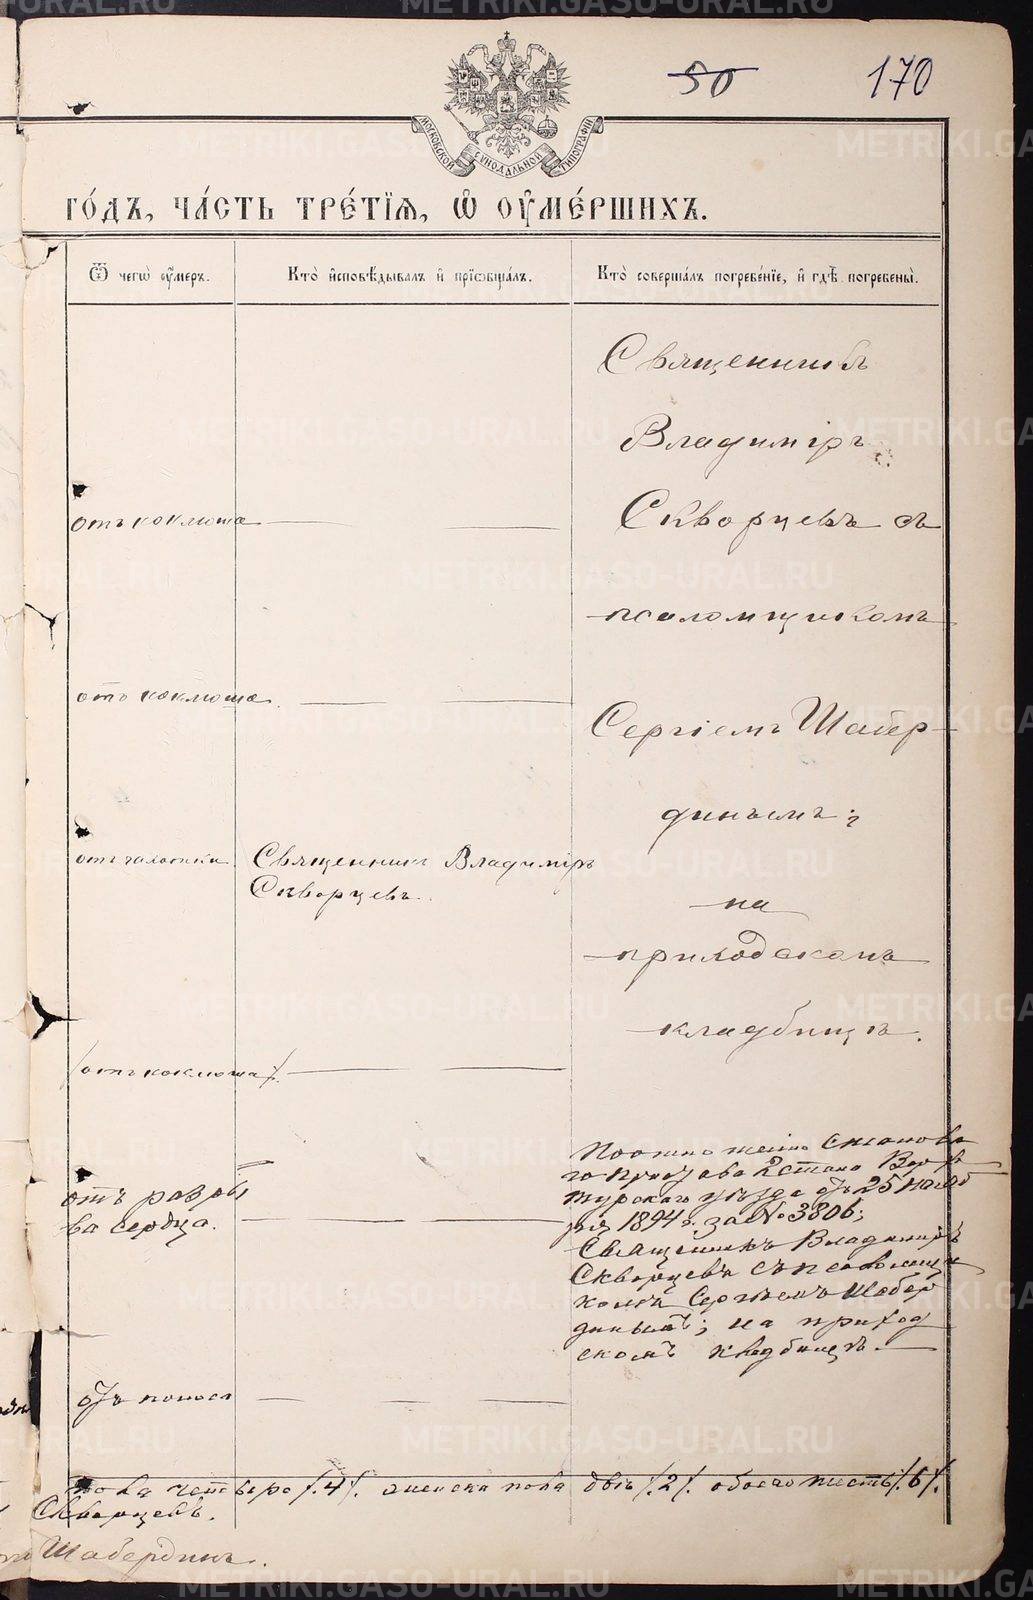 50 170
МОСКОВСКОЙ СѴНОДАЛЬНОЙ ТИПОГРАФІИ
го́дъ, ча́сть тре́тїѧ, ѡ҆ ᲂу҆ме́ршихъ.
Ѿ чегѡ̀ ᲂу҆́меръ. Кто̀ и҆сповѣ́дывалъ и҆ прїѡбща́лъ. Кто̀ соверша́лъ погребе́нїе, и҆ гдѣ̀ погребены̀.
Священникъ
Владиміръ
отъ коклюша
Скворцевъ съ
псаломщикомъ
отъ коклюша.
Сергіемъ Шабер-
динымъ;
отъ чахотки. Священникъ Владиміръ
Скворцевъ.
на
приходскомъ
кладбищѣ.
/отъ коклюша/.
По отношенію
го Пристава 2 стана Верхо
турскаго уѣзда отъ 25 нояб
ря 1894 г. за № 3806;
отъ разры
ва сердца.
Священникъ Владиміръ
Скворцевъ съ псаломщи
комъ Сергѣемъ Шабер
динымъ; на приход
скомъ кладбищѣ.
отъ поноса
пола четверо /.4/. женска пола двѣ /.2/. обоего шесть /.6/.
Скворцевъ.
Шабердинъ.
METRIKI.GASO-URAL.RU